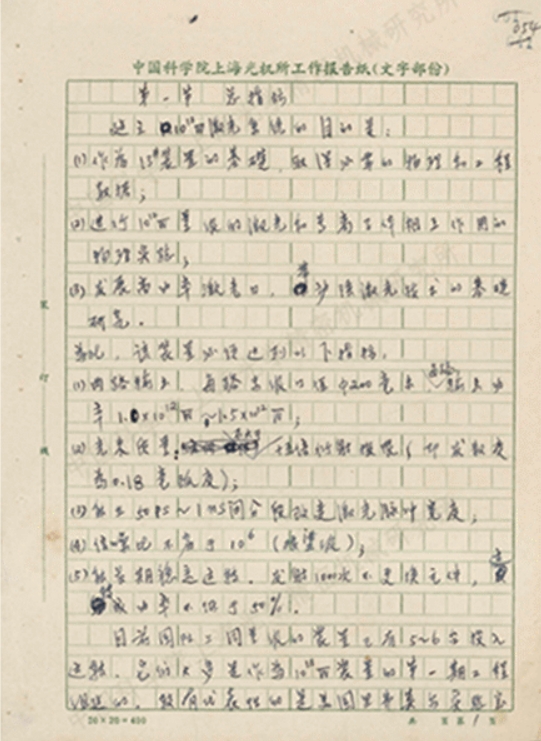 354
中国科学院上海光机所工作报告纸(文字部份)
第一节 总指标
建立10¹²瓦激光系统的目的是:
(1)作为 装置的基础,取得必要的物理和工程
数据;
(2)进行10¹²瓦量级的激光和等离子体相互作用的
物理实验;
(3)发展高功率激光 , 激光技术的基础
研究.
为此,该装置必须达到以下指标:
(1)两路输出,每路 口径φ200毫米,每路输出功
率1.0×10¹²瓦~1.5×10¹²瓦;
(2)光束质量: 倍衍射极限(即发散度
为0.18毫弧度);
(3)能在50ps~1ns间分段改变激光脉冲宽度;
(4)信噪比不低于10⁶(希望值);
(5)能长期稳定运转,发射1000次不更换元件,
成功率不低于50%.
目前国际上同量级的装置已有5~6台投入
运转,它们大多是作为10¹³瓦装置的第一期工程
建造的,最有代表性的是美国里弗莫尔实验室
装
订
线
20×20=400
共 页 第 1 页